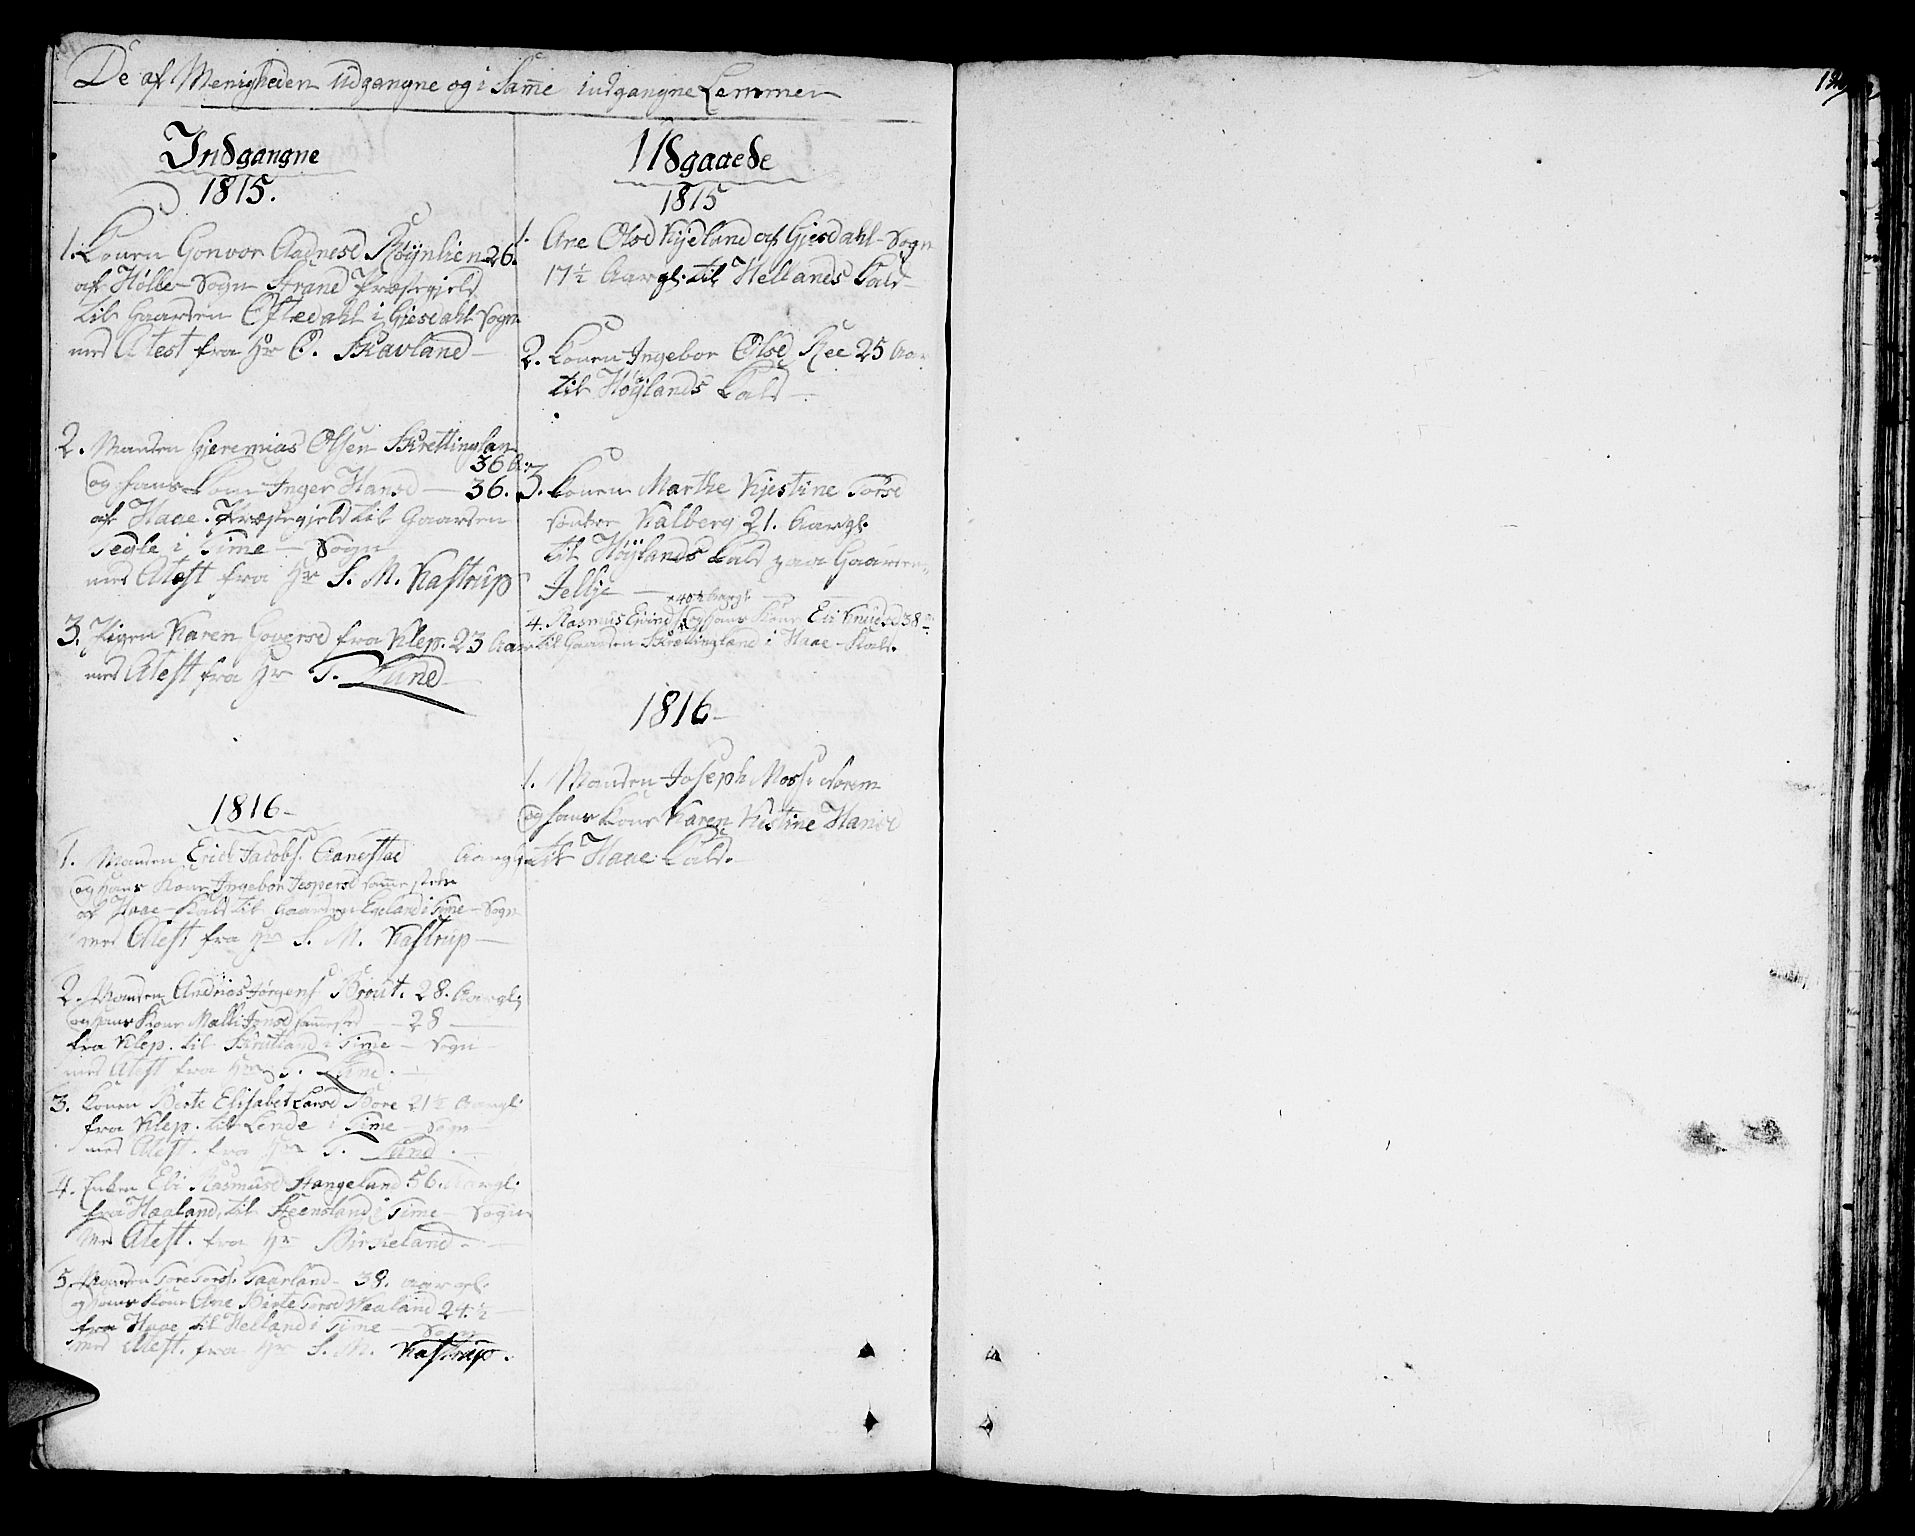 De af Menigheden udgangne og i Samme indgangne Lemmer
Indgangne
1815.
1. Konen Gonvor Aadnesd Røynlien 26.
af Hølle Sogn Strand Præstegjeld
til Gaarden Oftedahl i Gjesdahl Sogn
med Atest fra Hr O. Skavland
2. Manden Hjeremias Olsen Skrettingsan
36 Aar
og hans Kone Inger Hansd — 36.
af Haae Præstegjeld til Gaarden
Tegle i Time — Sogn
med Atest fra Hr S. M. Kastrup
3. Pigen Karen Goversd fra Klep. 23 Aar
med Atest fra Hr T. Lund
1816
1. Manden Erich Jacobs. Aanestad Aargl.
og hans Kone Ingebor Jespersd samme stede
af Haae Kald til Gaarden Egeland i Time Sogn
med Atest fra Hr S. M. Kastrup
2. Manden Andrias Jørgens Braut. 28. Aargl.
og hans Kone Malli Jonsd sammested — 28
fra Klep. til Skrutland i Time — Sogn
med Atest fra Hr T. Lund.
3. Konen Berte Elisabet Larsd Bore 21½ Aargl.
fra Klep. til Lende i Time — Sogn
med Atest. fra Hr T. Lund.
4. Enken Eli Rasmusd Stangeland 56. Aargl.
fra Haaland, til Steensland i Time — Sogn
Med Atest. fra Hr Birkeland.
5. Manden Tore Tors. Taarland — 38. aargl.
og hans Kone Ane Berte Torsd Waaland 24.½
fra Haae til Helland i Time — Sogn
med Atest. fra Hr S. M. Kastrup.
Udgaaede
1815
1. Ane Olsd Kydland af Gjesdahl Sogn
17½ Aargl. til Hellands Kald
2. Konen Ingebor Olsd Ree 25 Aar
til Høylands Kald
3. Konen Marthe Kjestine Torsd
søndre Kalberg 21. Aargl.
til Høylands Kald paa Gaarden
Jelsje
40½ Aargl
4. Rasmus Eivinds. og hans Kone Eli Knudsd 38
til Gaarden Skrettingland i Haae Kald.
1816
1. Manden Joseph Moss. Norem
og hans Kone Karen Kistine Hansd
til Haae Kald.